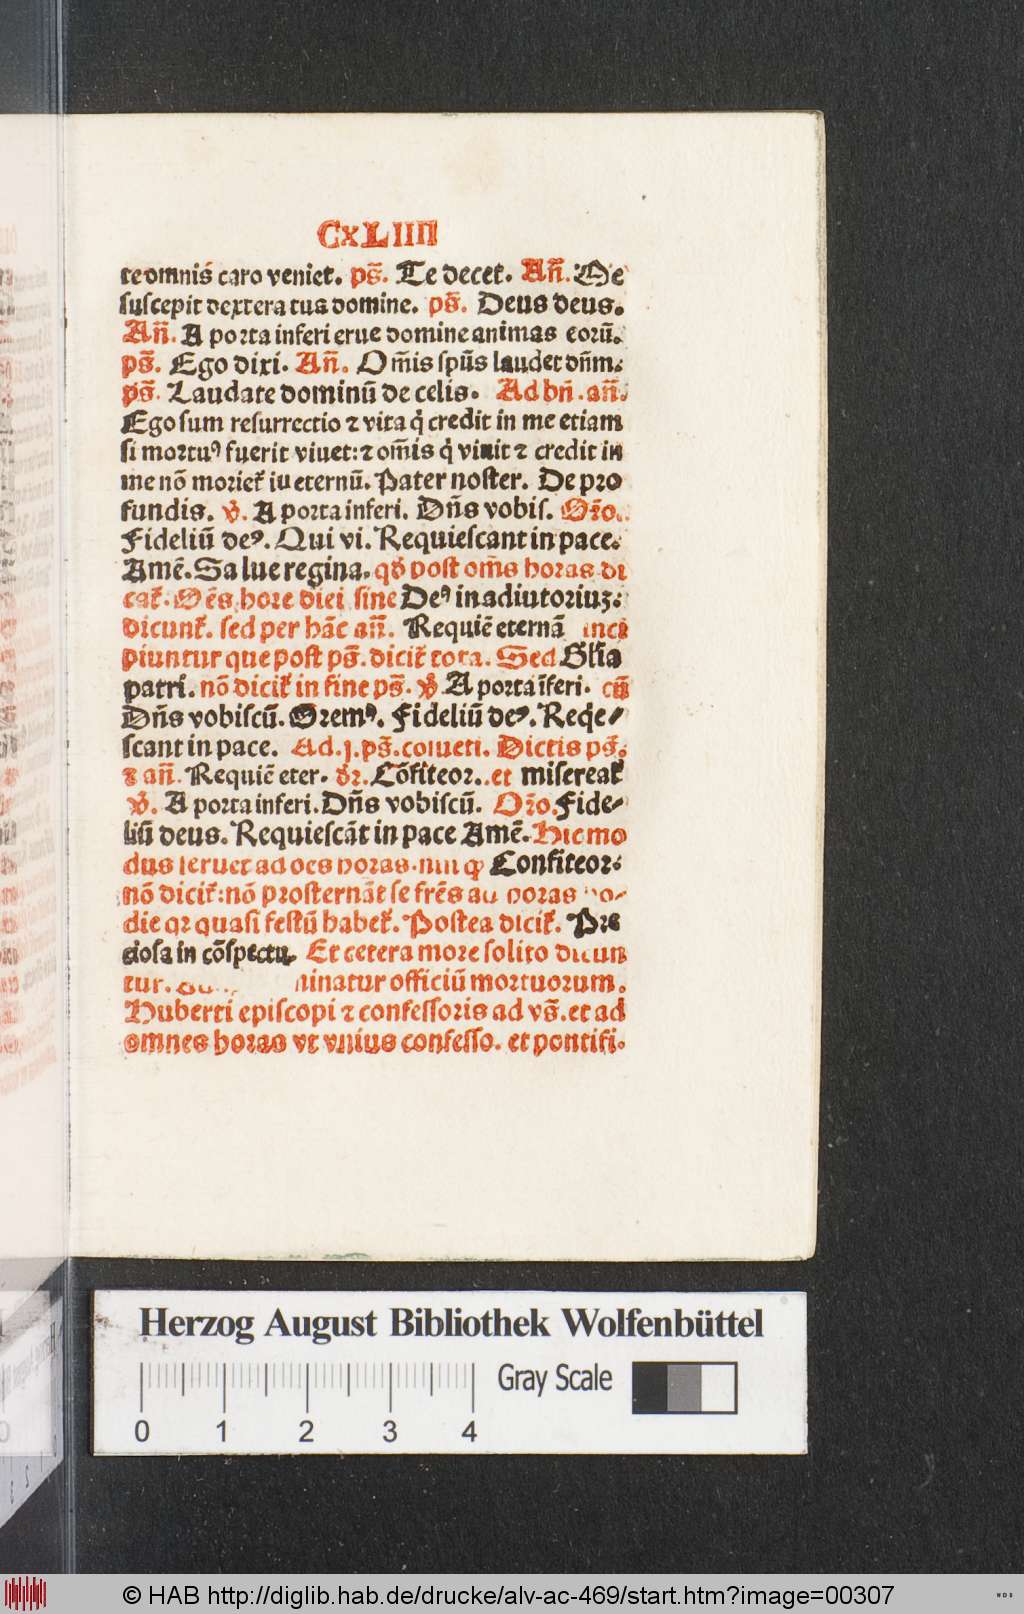 CxLIIII
te omnis̄ caro veniet. ps̄. Te decet. An̄. Me
suscepit dextera tua domine. ps̄. Deus deus.
An̄. A porta inferi erue domine animas eorū.
ps̄. Ego dixi. An̄. Om̄is spūs laudet dn̄m.
ps̄. Laudate dominū de celis. Ad bn̄. an̄.
Ego sum resurrectio ⁊ vita q̇ credit in me etiam
si mortuꝰ fuerit viuet: ⁊ om̄is q̇ viuit ⁊ credit in
me nō morieť iu eternū. Pater noster. De pro
fundis. ꝟ. A porta inferi. Dn̄s vobis. Oꝛ̄o.
Fideliū deꝰ. Qui vi. Requiescant in pace.
Amē. Salue regina. qđ post om̄s horas di
cať. Oēs hore diei sine Deꝰ in adiutoriuꝫ:
dicunť. sed per hāc an̄. Requiē eternā inci
piuntur que post ps̄. diciť tota. Sed Gl̄ia
patri. nō diciť in fine ps̄. ꝟ A porta īferi. cū
Dn̄s vobiscū. Oremꝰ. Fideliū deꝰ. Reqe/
scant in pace. Ad .j. ps̄. cōueti. Dictis ps̄.
⁊ an̄. Requiē eter. dꝛ. Cōfiteor. et misereať
ꝟ. A porta inferi. Dn̄s vobiscū. Oꝛ̄o. Fide/
liū deus. Requiescāt in pace Amē. Hic mo
dus seruet ad oēs horas. Confiteor:
nō diciť: nō prosternāt se frēs ad horas ho/
die qꝛ quasi festū habeť. Postea diciť. Pre
ciosa in cōspectu. Et cetera more solito dicun
tur. minatur officiū mortuorum.
Huberti episcopi ⁊ confessoris ad vs̄. et ad
omnes horas vt vnius confesso. et pontifi.
Herzog August Bibliothek Wolfenbüttel
Gray Scale
0 1 2 3 4
© HAB http://diglib.hab.de/drucke/alv-ac-469/start.htm?image=00307